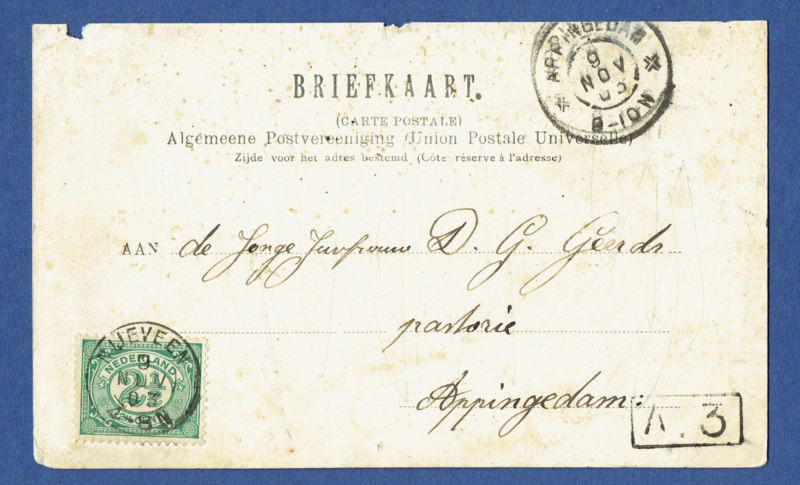 APPINGEDAM
9
NOV
03
9-10N
BRIEFKAART.
(CARTE POSTALE)
Algemeene Postvereeniging (Union Postale Universelle)
Zijde voor het adres bestemd (Côté réservé à l'adresse)
AAN de Jonge Jufvrouw D. G. Geerds
pastorie
Appingedam:
NIJEVEEN
9
NOV
03
NEDERLAND
2½
A. 3